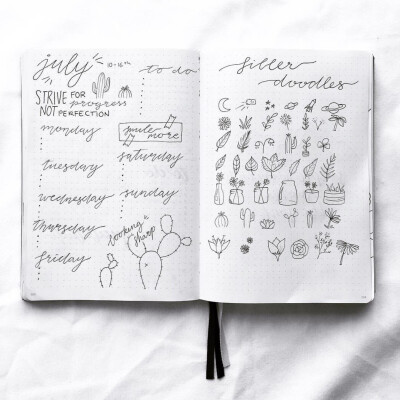 july
10-16th
to do
STRIVE FOR
progress
NOT PERFECTION
monday
tuesday
wednesday
thursday
friday
saturday
sunday
looking
sharp
filler
doodles